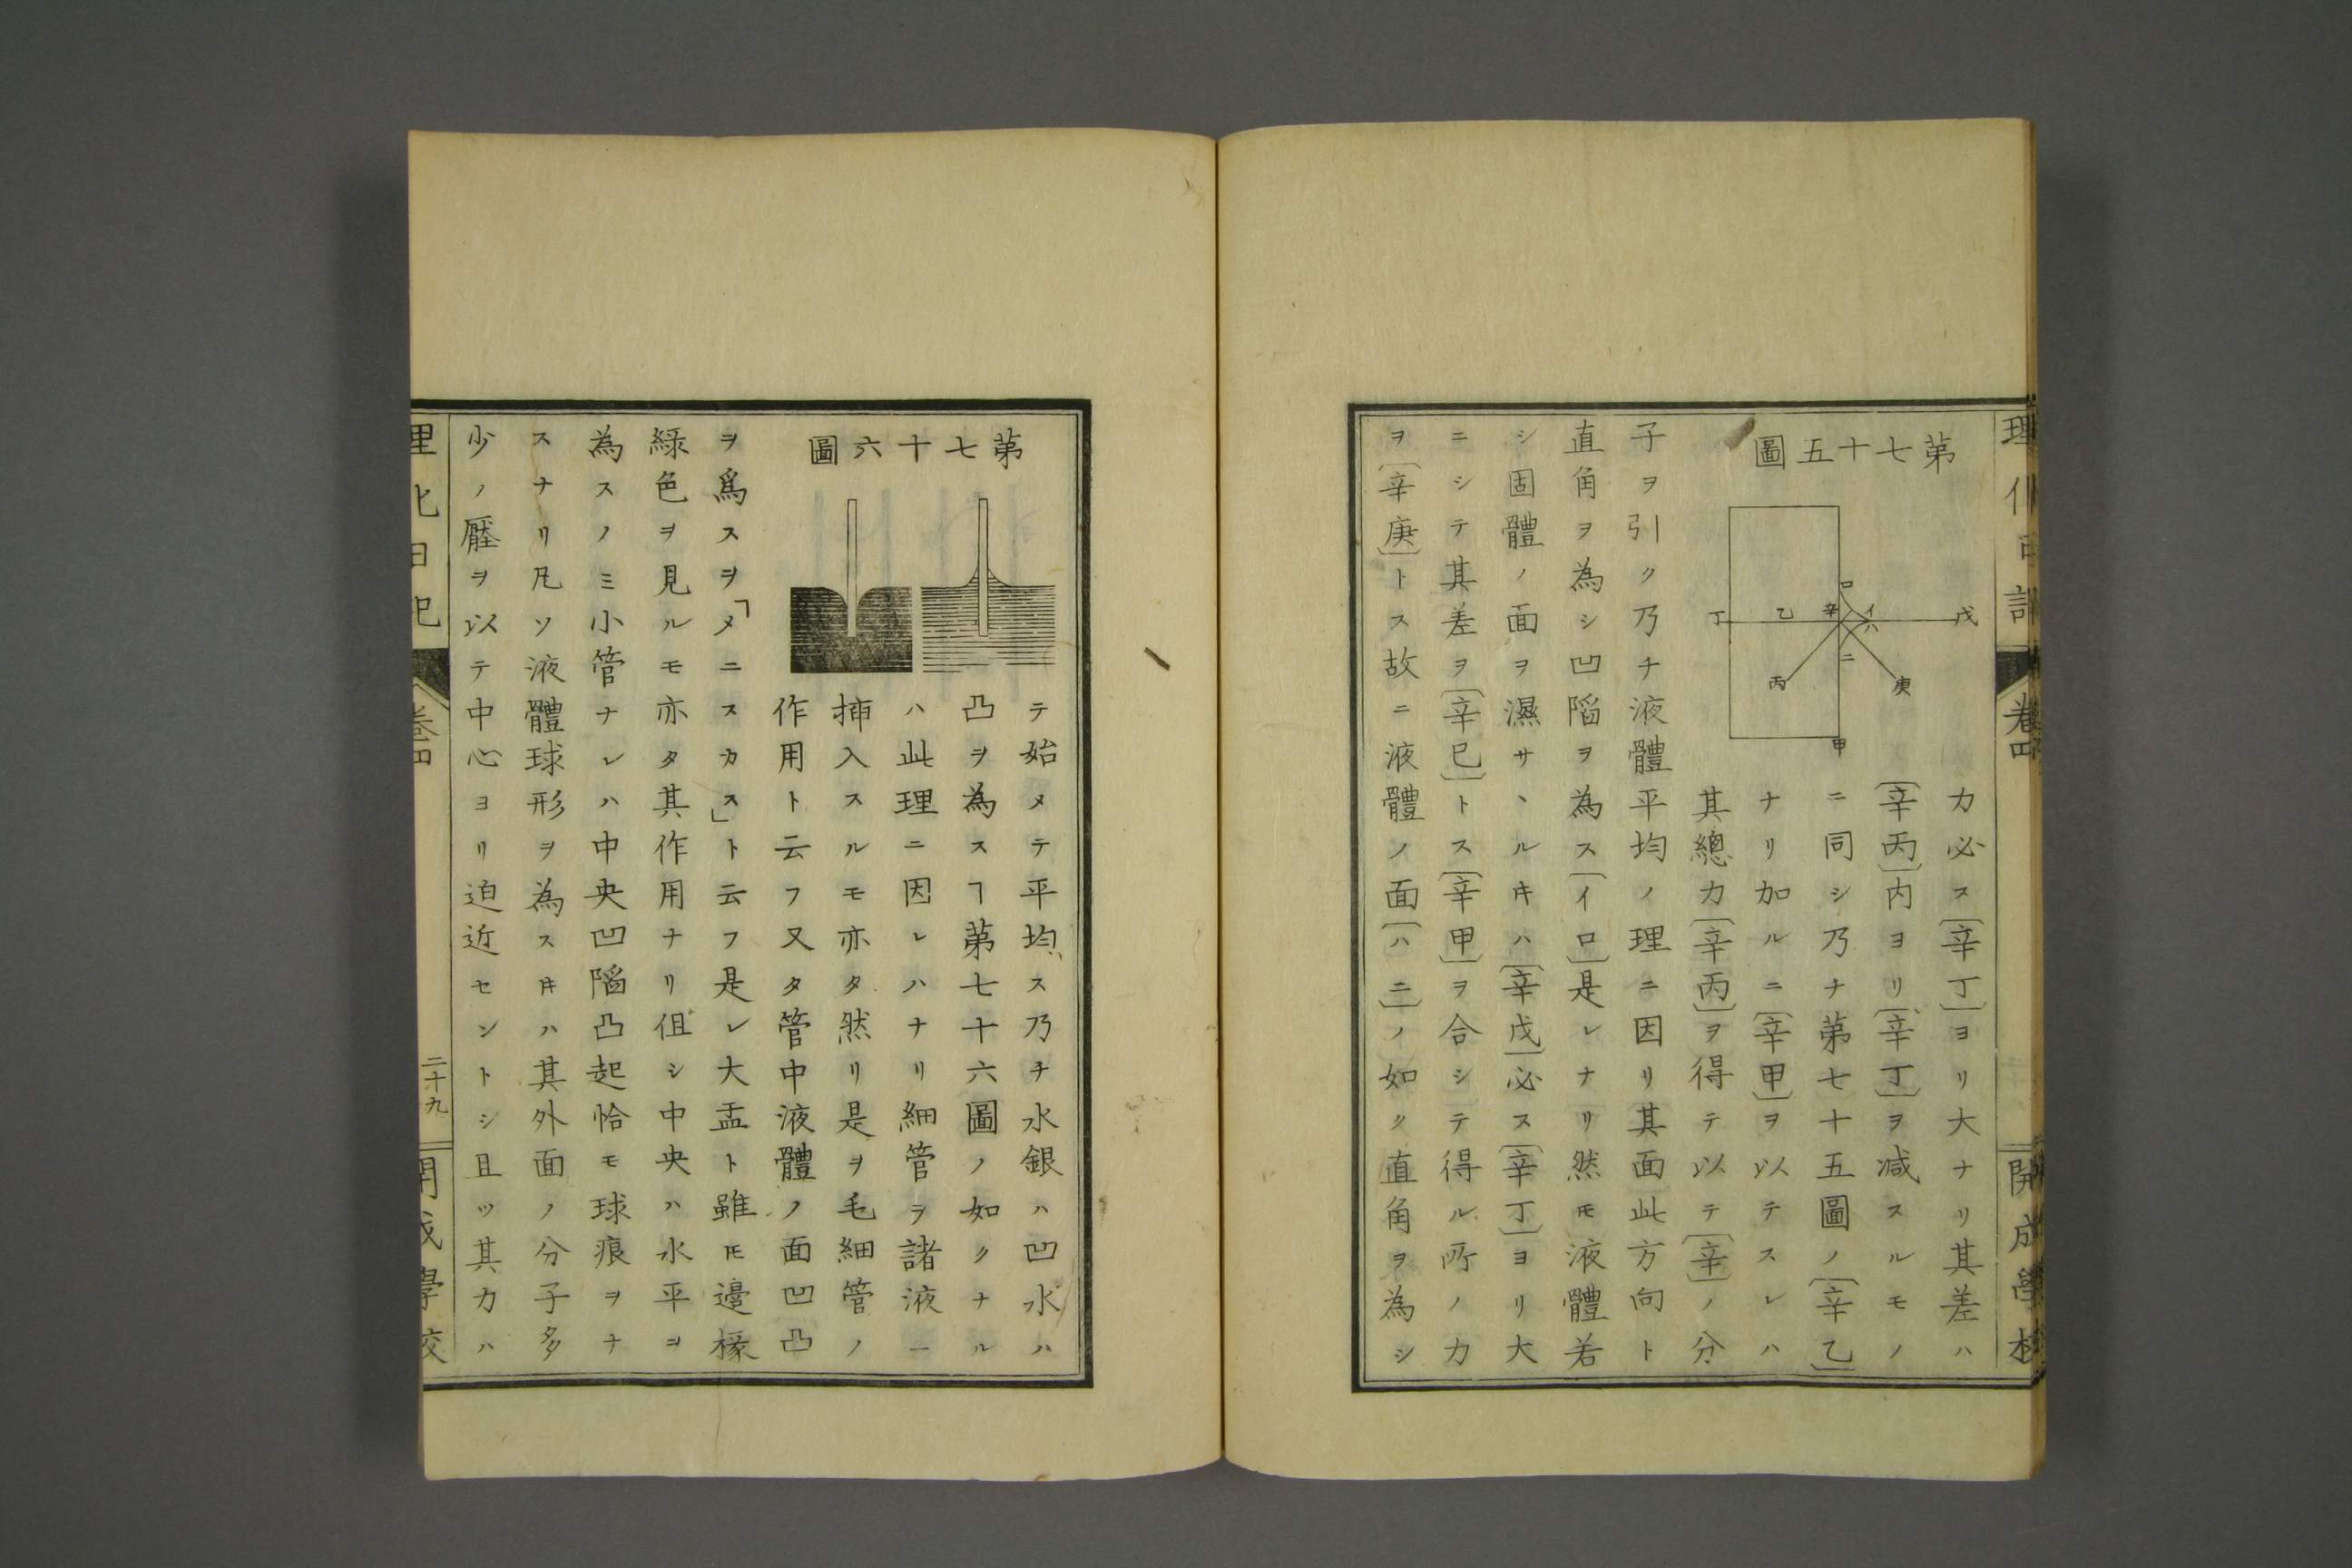 第七十五圖
戊
イ
ロ
ハ
ニ
辛
乙
丁
丙
庚
甲
力必ス〔辛丁〕ヨリ大ナリ其差ハ
〔辛丙〕内ヨリ〔辛丁〕ヲ减スルモノ
ニ同シ乃チ第七十五圖ノ〔辛乙〕
ナリ加ルニ〔辛甲〕ヲ以テスレハ
其總力〔辛丙〕ヲ得テ以テ〔辛〕ノ分
子ヲ引ク乃チ液體平均ノ理ニ因リ其面此方向ト
直角ヲ為シ凹陷ヲ為ス〔イロ〕是レナリ然𪜈液體若
シ固體ノ面ヲ濕サヽルキハ〔辛戊〕必ス〔辛丁〕ヨリ大
ニシテ其差ヲ〔辛已〕トス〔辛甲〕ヲ合シテ得ル所ノ力
ヲ〔辛庚〕トス故ニ液體ノ面〔ハニ〕ノ如ク直角ヲ為シ
卷四
開成學校
第七十六圖
テ始メテ平均ス乃チ水銀ハ凹水ハ
凸ヲ為スヿ第七十六圖ノ如クナル
ハ此理ニ因レハナリ細管ヲ諸液ニ
挿入スルモ亦タ然リ是ヲ毛細管ノ
作用ト云フ又タ管中液體ノ面凹凸
ヲ爲スヲ「メニスカス」ト云フ是レ大盂ト雖𪜈邊椽
綠色ヲ見ルモ亦タ其作用ナリ伹シ中央ハ水平ヲ
為スノミ小管ナレハ中央凹陷凸起恰モ球痕ヲナ
スナリ凡ソ液體球形ヲ為スキハ其外面ノ分子多
少ノ壓ヲ以テ中心ヨリ迫近セントシ且ツ其力ハ
卷四
二十九
開成學校